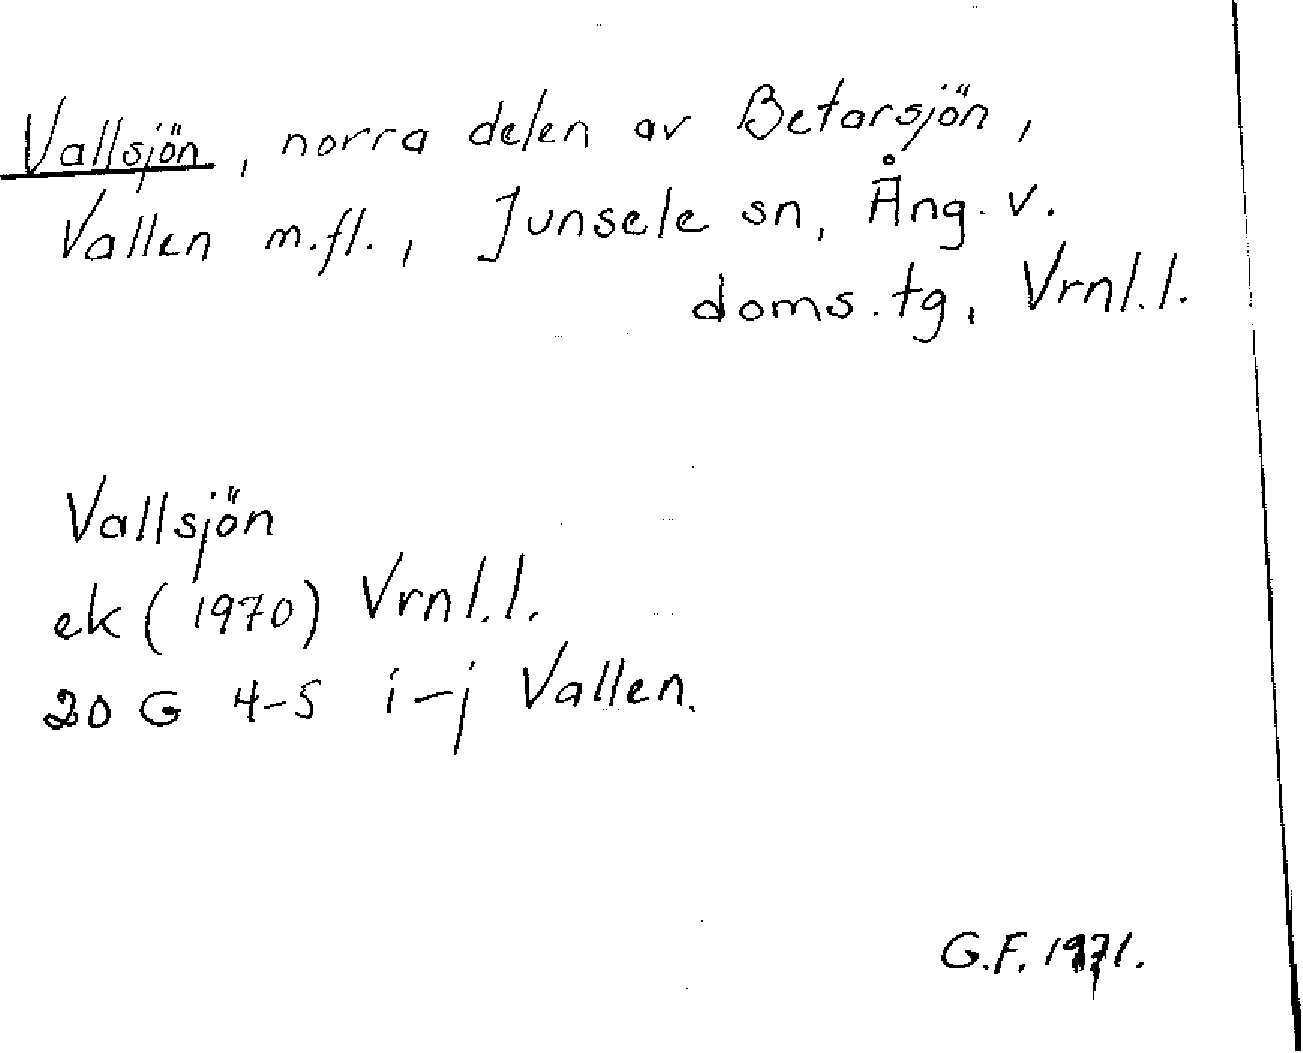 Vallsjön, norra delen av Betarsjön,
Vallen m.fl., Junsele sn, Ång. v.
doms. tg, Vrnl.l.
Vallsjön
ek (1970) Vrnl.l.
20 G 4-5 i-j Vallen.
G.F. 1971.